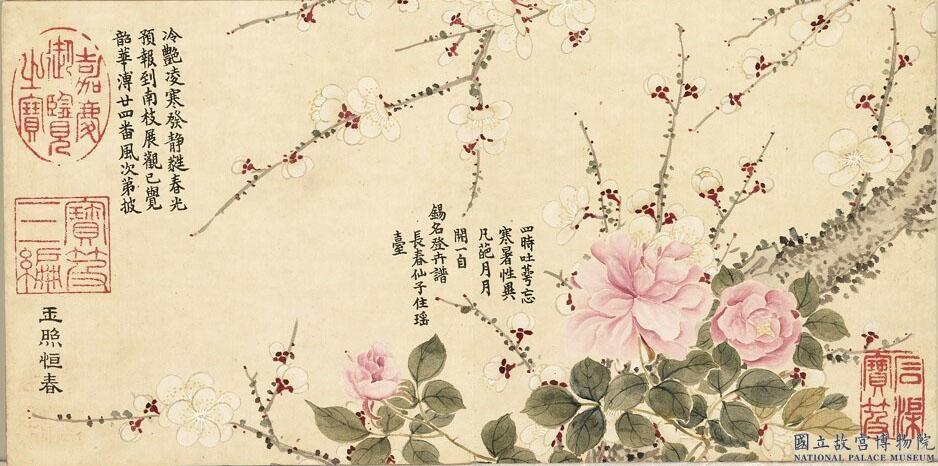 石渠
寶笈
四時吐萼忘
寒暑性異
凡葩月月
開一自
錫名登卉譜
長春仙子住瑤
臺
冷艷凌寒發靜春光
預報到南枝展觀已覺
韶華溥廿四番風次第披
嘉慶
御覽
之寶
寶笈
三編
玉照恒春
國立故宮博物院
NATIONAL PALACE MUSEUM